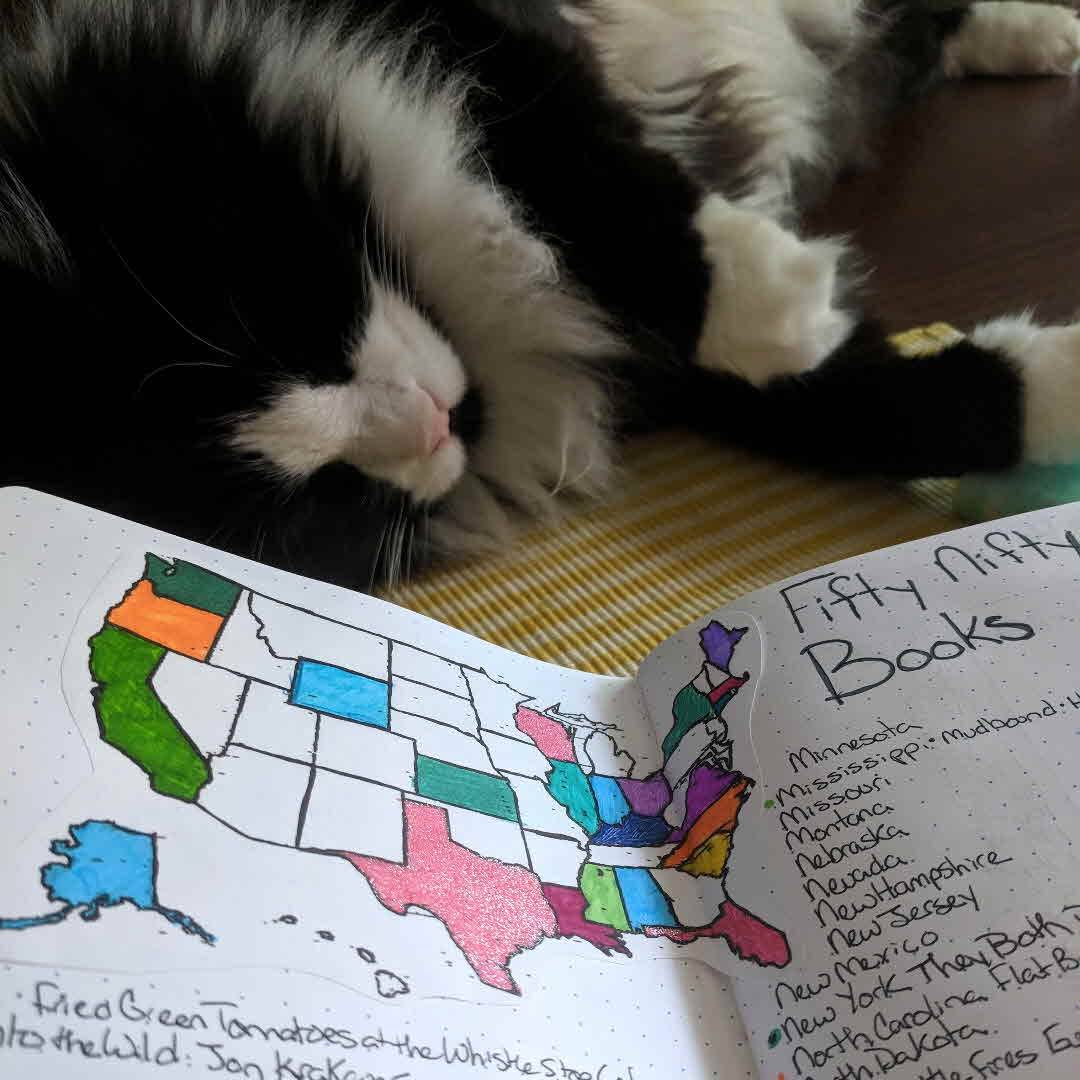 Fried Green Tomatoes at the Whistle Stop
to the Wild: Jon
Fifty Nifty
Books
Minnesota
Mississippi: Mudbound
Missouri
Montana
Nebraska
Nevada
New Hampshire
New Jersey
New Mexico
New York They Both
North Carolina Flat
Dakota
Fires